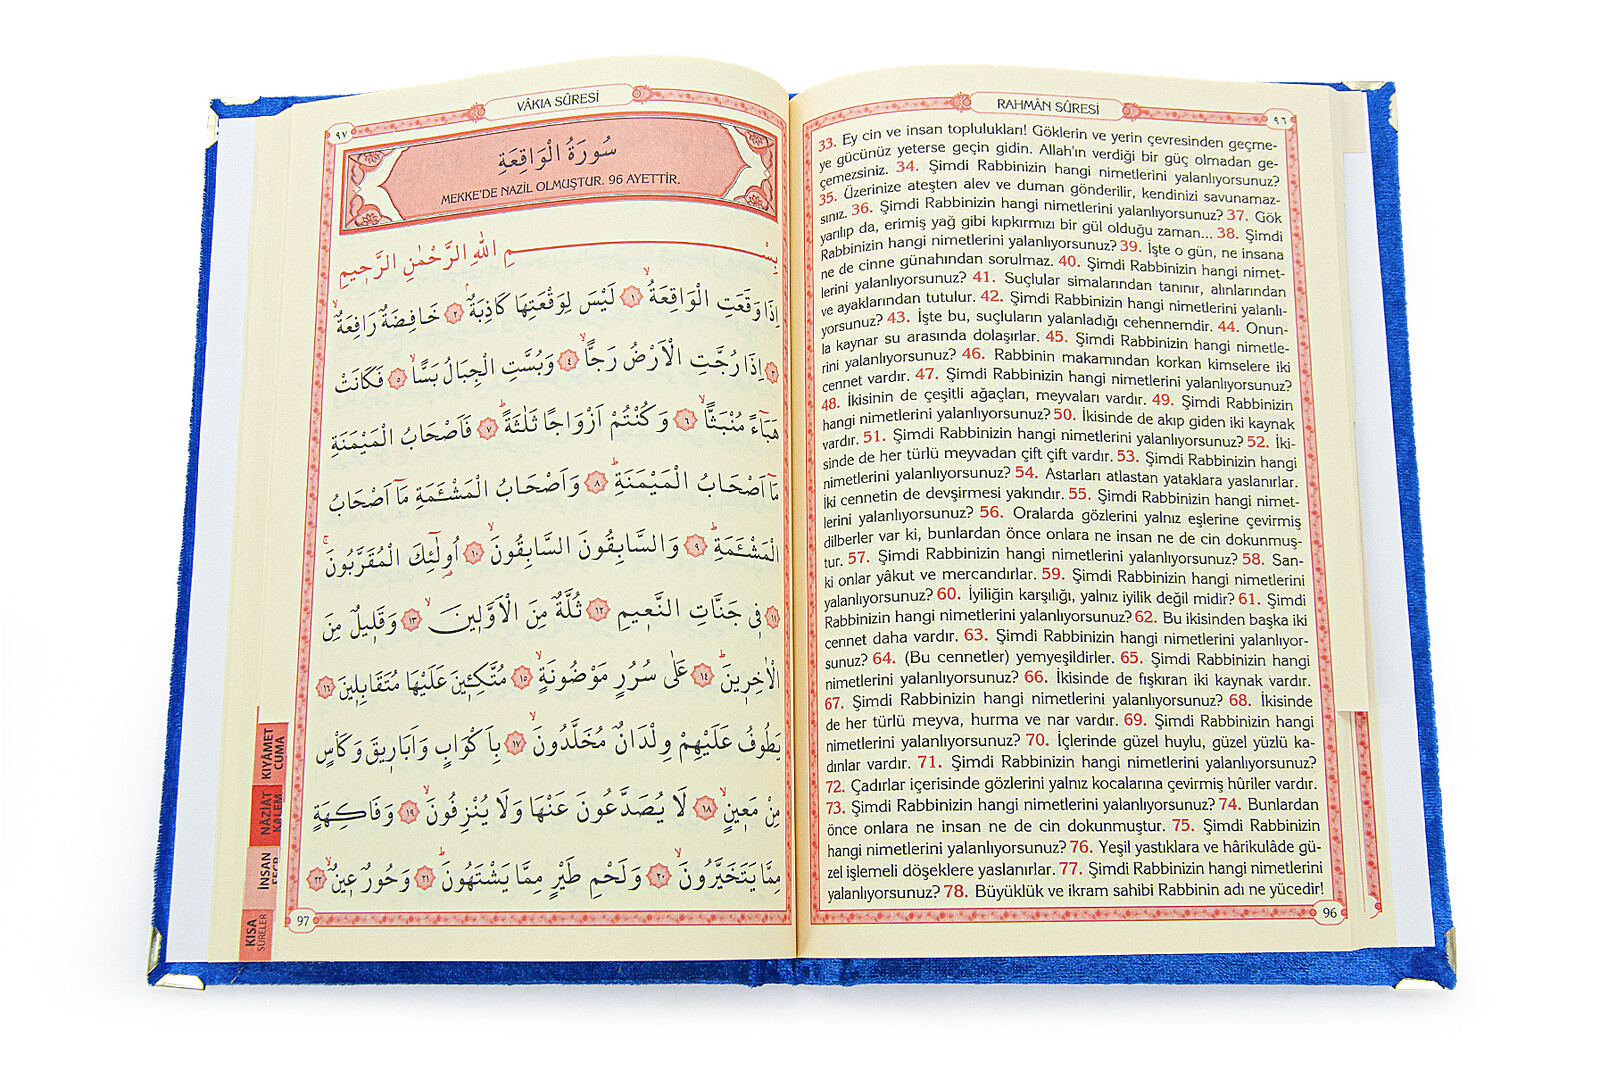 RAHMÂN SÛRESİ
٩٦
33. Ey cin ve insan toplulukları! Göklerin ve yerin çevresinden geçme-
ye gücünüz yeterse geçin gidin. Allah'ın verdiği bir güç olmadan ge-
çemezsiniz. 34. Şimdi Rabbinizin hangi nimetlerini yalanlıyorsunuz?
35. Üzerinize ateşten alev ve duman gönderilir, kendinizi savunamaz-
sınız. 36. Şimdi Rabbinizin hangi nimetlerini yalanlıyorsunuz? 37. Gök
yarılıp da, erimiş yağ gibi kıpkırmızı bir gül olduğu zaman... 38. Şimdi
Rabbinizin hangi nimetlerini yalanlıyorsunuz? 39. İşte o gün, ne insana
ne de cinne günahından sorulmaz. 40. Şimdi Rabbinizin hangi nimet-
lerini yalanlıyorsunuz? 41. Suçlular simalarından tanınır, alınlarından
ve ayaklarından tutulur. 42. Şimdi Rabbinizin hangi nimetlerini yalanlı-
yorsunuz? 43. İşte bu, suçluların yalanladığı cehennemdir. 44. Onun-
la kaynar su arasında dolaşırlar. 45. Şimdi Rabbinizin hangi nimetle-
rini yalanlıyorsunuz? 46. Rabbinin makamından korkan kimselere iki
cennet vardır. 47. Şimdi Rabbinizin hangi nimetlerini yalanlıyorsunuz?
48. İkisinin de çeşitli ağaçları, meyvaları vardır. 49. Şimdi Rabbinizin
hangi nimetlerini yalanlıyorsunuz? 50. İkisinde de akıp giden iki kaynak
vardır. 51. Şimdi Rabbinizin hangi nimetlerini yalanlıyorsunuz? 52. İki-
sinde de her türlü meyvadan çift çift vardır. 53. Şimdi Rabbinizin hangi
nimetlerini yalanlıyorsunuz? 54. Astarları atlastan yataklara yaslanırlar.
İki cennetin de devşirmesi yakındır. 55. Şimdi Rabbinizin hangi nimet-
lerini yalanlıyorsunuz? 56. Oralarda gözlerini yalnız eşlerine çevirmiş
dilberler var ki, bunlardan önce onlara ne insan ne de cin dokunmuş-
tur. 57. Şimdi Rabbinizin hangi nimetlerini yalanlıyorsunuz? 58. San-
ki onlar yâkut ve mercandırlar. 59. Şimdi Rabbinizin hangi nimetlerini
yalanlıyorsunuz? 60. İyiliğin karşılığı, yalnız iyilik değil midir? 61. Şimdi
Rabbinizin hangi nimetlerini yalanlıyorsunuz? 62. Bu ikisinden başka iki
cennet daha vardır. 63. Şimdi Rabbinizin hangi nimetlerini yalanlıyor-
sunuz? 64. (Bu cennetler) yemyeşildirler. 65. Şimdi Rabbinizin hangi
nimetlerini yalanlıyorsunuz? 66. İkisinde de fışkıran iki kaynak vardır.
67. Şimdi Rabbinizin hangi nimetlerini yalanlıyorsunuz? 68. İkisinde
de her türlü meyva, hurma ve nar vardır. 69. Şimdi Rabbinizin hangi
nimetlerini yalanlıyorsunuz? 70. İçlerinde güzel huylu, güzel yüzlü ka-
dınlar vardır. 71. Şimdi Rabbinizin hangi nimetlerini yalanlıyorsunuz?
72. Çadırlar içerisinde gözlerini yalnız kocalarına çevirmiş hûriler vardır.
73. Şimdi Rabbinizin hangi nimetlerini yalanlıyorsunuz? 74. Bunlardan
önce onlara ne insan ne de cin dokunmuştur. 75. Şimdi Rabbinizin
hangi nimetlerini yalanlıyorsunuz? 76. Yeşil yastıklara ve hârikulâde gü-
zel işlemeli döşeklere yaslanırlar. 77. Şimdi Rabbinizin hangi nimetlerini
yalanlıyorsunuz? 78. Büyüklük ve ikram sahibi Rabbinin adı ne yücedir!
96
VÂKIA SÛRESİ
٩٧
سُورَةُ الْوَاقِعَةِ
MEKKE'DE NAZİL OLMUŞTUR. 96 AYETTİR.
بِسْمِ اللّٰهِ الرَّحْمٰنِ الرَّح۪يمِ
اِذَا وَقَعَتِ الْوَاقِعَةُۙ ١ لَيْسَ لِوَقْعَتِهَا كَاذِبَةٌۢ ٢ خَافِضَةٌ رَافِعَةٌۙ
٣ اِذَا رُجَّتِ الْاَرْضُ رَجًّاۙ ٤ وَبُسَّتِ الْجِبَالُ بَسًّاۙ ٥ فَكَانَتْ
هَبَٓاءً مُنْبَثًّاۙ ٦ وَكُنْتُمْ اَزْوَاجًا ثَلٰثَةًۜ ٧ فَاَصْحَابُ الْمَيْمَنَةِ
مَٓا اَصْحَابُ الْمَيْمَنَةِۜ ٨ وَاَصْحَابُ الْمَشْـَٔمَةِ مَٓا اَصْحَابُ
الْمَشْـَٔمَةِۜ ٩ وَالسَّابِقُونَ السَّابِقُونَۙ ١٠ اُو۬لٰٓئِكَ الْمُقَرَّبُونَۚ
١١ ف۪ي جَنَّاتِ النَّع۪يمِ ١٢ ثُلَّةٌ مِنَ الْاَوَّل۪ينَۙ ١٣ وَقَل۪يلٌ مِنَ
الْاٰخِر۪ينَۜ ١٤ عَلٰى سُرُرٍ مَوْضُونَةٍۙ ١٥ مُتَّكِـ۪ٔينَ عَلَيْهَا مُتَقَابِل۪ينَ ١٦
يَطُوفُ عَلَيْهِمْ وِلْدَانٌ مُخَلَّدُونَۙ ١٧ بِاَكْوَابٍ وَاَبَار۪يقَ وَكَأْسٍ
مِنْ مَع۪ينٍۙ ١٨ لَا يُصَدَّعُونَ عَنْهَا وَلَا يُنْزِفُونَۙ ١٩ وَفَاكِهَةٍ
مِمَّا يَتَخَيَّرُونَۙ ٢٠ وَلَحْمِ طَيْرٍ مِمَّا يَشْتَهُونَۜ ٢١ وَحُورٌ ع۪ينٌۙ ٢٢
97
KIYÂMET
CUMA
NÂZİÂT
KALEM
İNSAN
KISA
SÛRELER